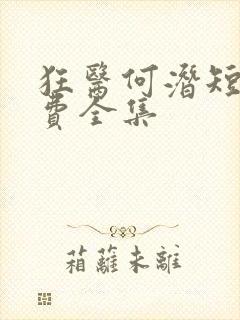 狂醫何潛短
費全集
箱蘺未離